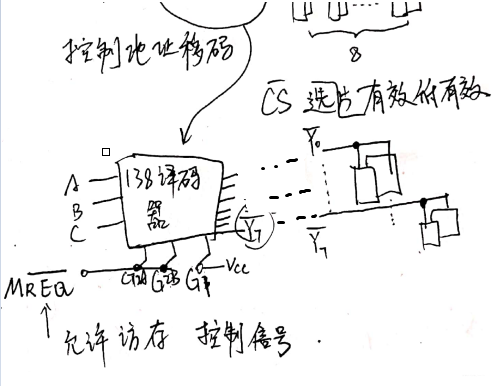 8
控制地址移码
CS 选片有效低有效
Y0
A
B
C
138译码
器
Y7
Y7
MREQ
G2A
G2B
G1
Vcc
允许访存 控制信号.